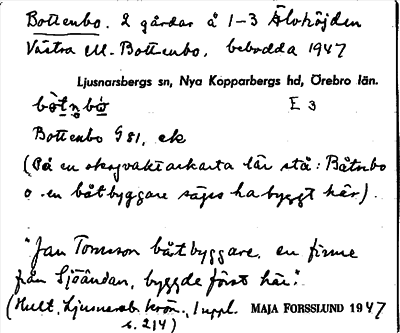 Bottenbo. 2 gårdar å 1-3 Älvhöjden
Västra ell. Bottenbo, bebodda 1947
Ljusnarsbergs sn, Nya Kopparbergs hd, Örebro län.
E 3
Bottenbo G 81, ek
(På en skogvaktarkarta lär stå: Båtnbo
o en båtbyggare säges ha byggt här).
"Jan Tomsson båtbyggare, en finne
från Sjöändan, byggde först här."
(Hult, Ljusnarsb. krön., 1 uppl. MAJA FORSSLUND 1947
s. 214)